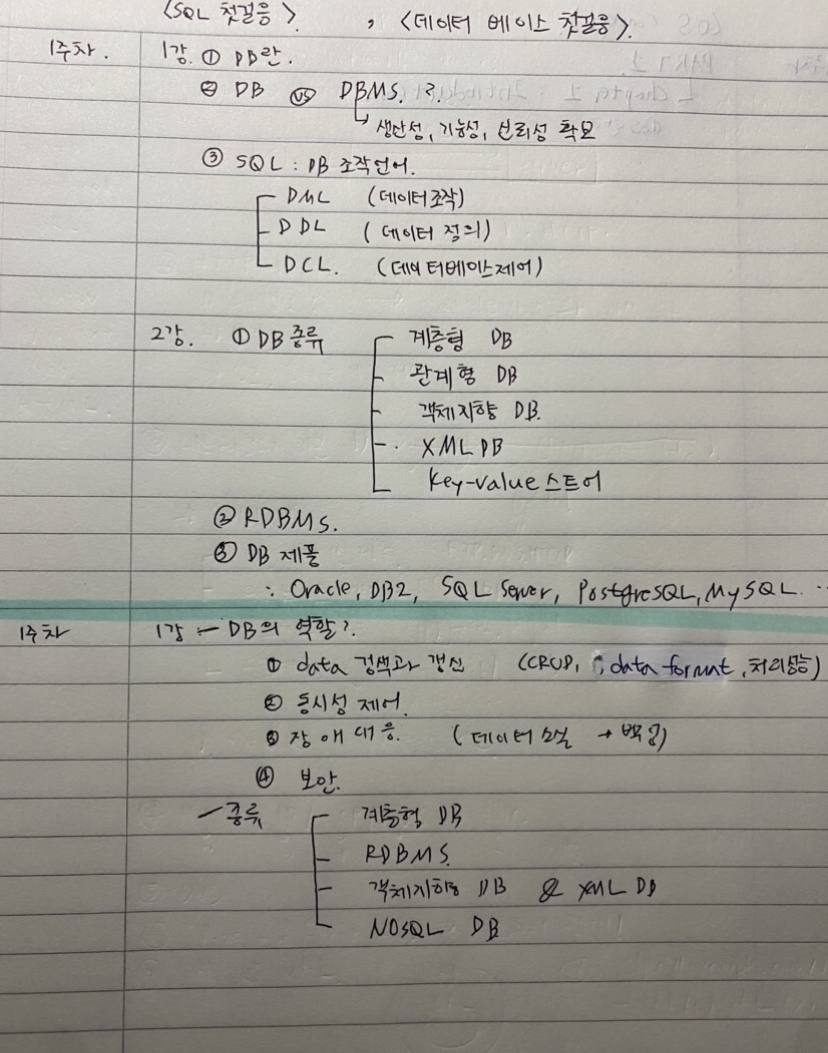 <SQL 첫걸음>. , <데이터 베이스 첫걸음>.
1주차. 1강. ① DB란.
② DB VS DBMS. ?.
↳ 생산성, 기능성, 신뢰성 확보
③ SQL : DB 조작언어.
DML (데이터조작)
DDL (데이터 정의)
DCL. (데이터베이스제어)
2강. ① DB종류 계층형 DB
관계형 DB
객체지향 DB.
XML DB
Key-value 스토어
② RDBMS.
③ DB 제품
: Oracle, DB2, SQL Server, PostgreSQL, MySQL. ..
1주차 1강 - DB의 역할?.
① data 검색과 갱신 (CRUD, data format, 처리성능)
② 동시성 제어.
③ 장애대응. (데이터 소실 → 백업)
④ 보안.
- 종류 계층형 DB
RDBMS.
객체지향 DB & XML DB
NOSQL DB